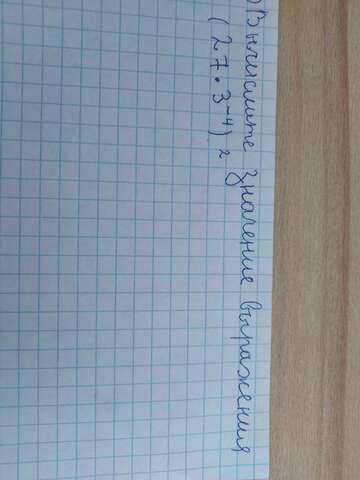 ) Вычислите значение выражения
(27 • 3⁻⁴)²